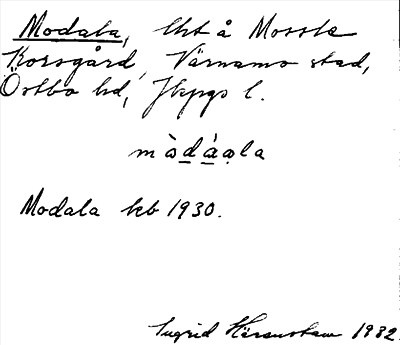 Modala, lht å Mossle
Korsgård, Värnamo stad,
Östbo hd, Jkpgs l.
mòdáạla
Modala kb 1930.
Ingrid 1982